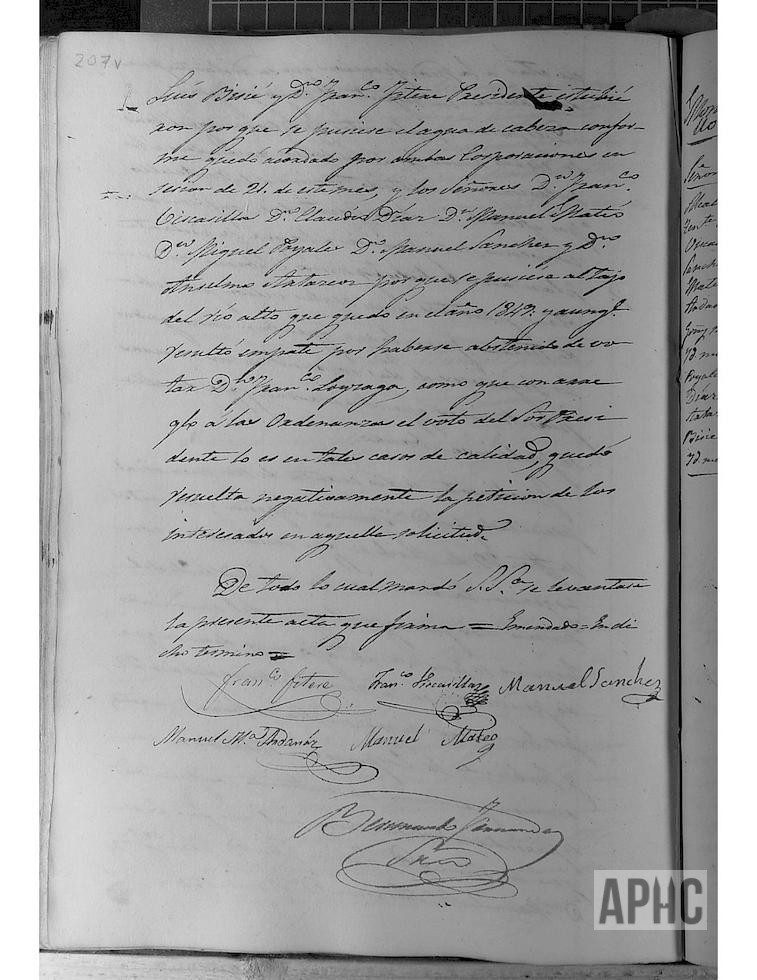 207v
Luis Bisié y Dn. Franco. Fitera Presidente estubie
ron por que se pusiese el agua de cabeza confor-
me quedó acordado por ambas Corporaciones en
sesion de 21. de este mes, y los Señores Dn. Franco.
Viscasillas Dn. Claudio Díaz Dn. Manuel Mateo
Dn. Miguel Poyales Dn. Manuel Sanchez y Dn.
Anselmo por que se pusiese al tajo
del río alto que quedó en el año 1843. y aunqe.
resultó empate por haberse abstenido de vo-
tar Dn. Franco. Loyzaga, como que con arre
glo á las Ordenanzas el voto del Sor. Presi
dente lo es en tales casos de calidad, quedó
resuelta negativamente la peticion de los
interesados en aquella solicitud.
De todo lo cual mandó S.Sa. se levantase
la presente acta que firma = Enmendado = En di
cho termino =
Franco. Fitera Franco. Viscasillas Manuel Sanchez
Manuel Ma. Andanáz Manuel Mateo
Fernandez
Srio
Señor
Bisie
APHC